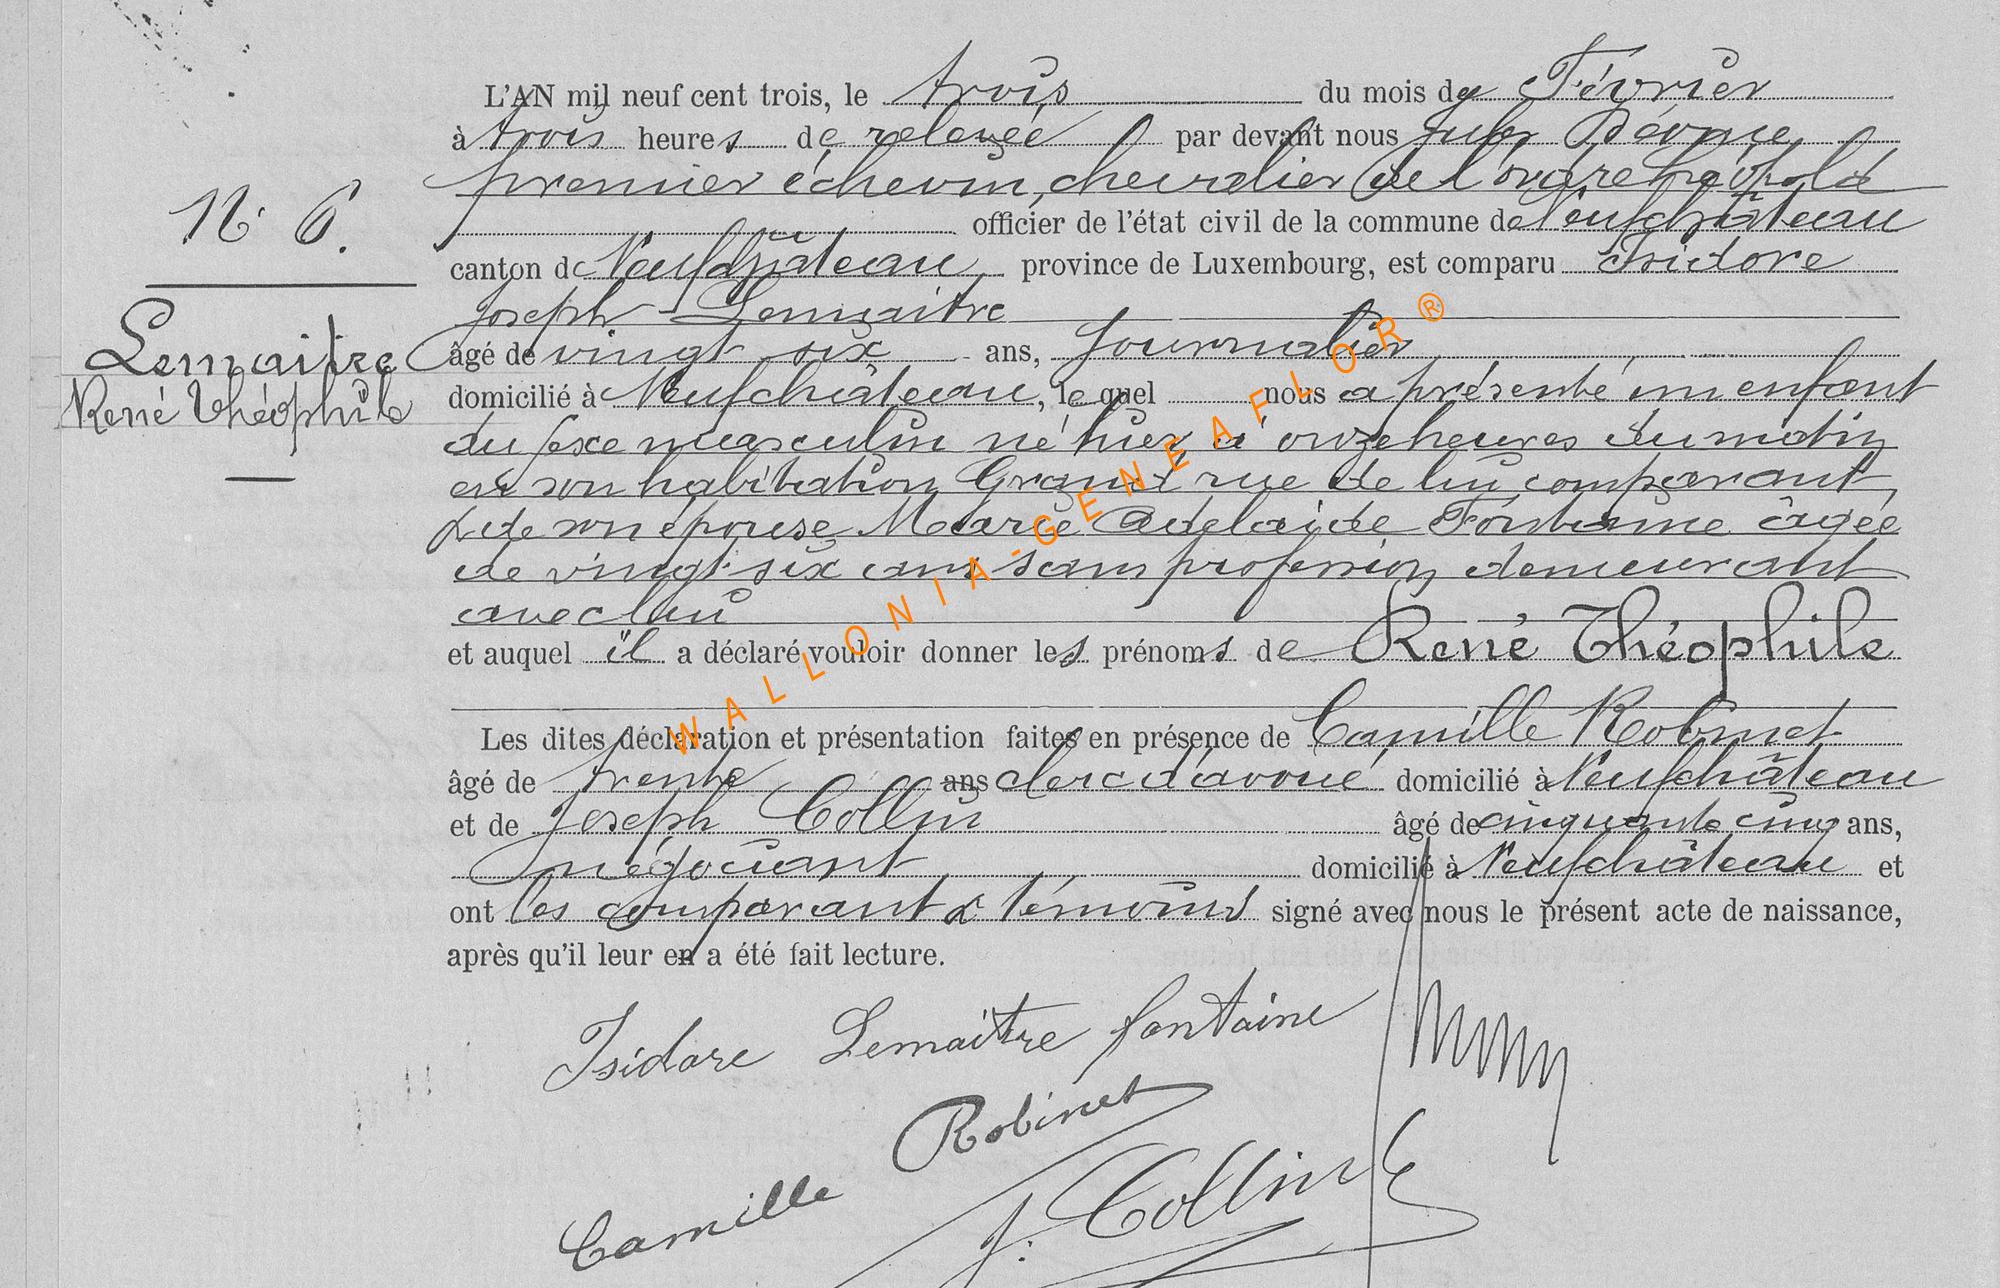 L'AN mil neuf cent trois, le trois du mois de Février
à trois heures de relevée par devant nous Jules
premier échevin, chevalier de l'ordre Léopold
N° 6.
officier de l'état civil de la commune de Neufchâteau
canton de Neufchâteau, province de Luxembourg, est comparu Isidore
Joseph Lemaitre
Lemaitre
âgé de vingt six ans, Journalier
René Théophile
domicilié à Neufchâteau, lequel nous a présenté un enfant
du sexe masculin né hier à onze heures du matin
en son habitation Grand rue de lui comparant
& de son épouse Marie Adelaïde Fontaine âgée
de vingt-six ans sans profession demeurant
avec lui
et auquel il a déclaré vouloir donner les prénoms de René Théophile
Les dites déclaration et présentation faites en présence de Camille Robinet
âgé de trente ans clerc d'avoué domicilié à Neufchâteau
et de Joseph Collin âgé de cinquante cinq ans,
négociant domicilié à Neufchâteau et
ont les comparant & témoins signé avec nous le présent acte de naissance,
après qu'il leur en a été fait lecture.
Isidore Lemaitre fontaine
Camille Robinet
J. Collin
WALLONIA-GENEAFLOR®